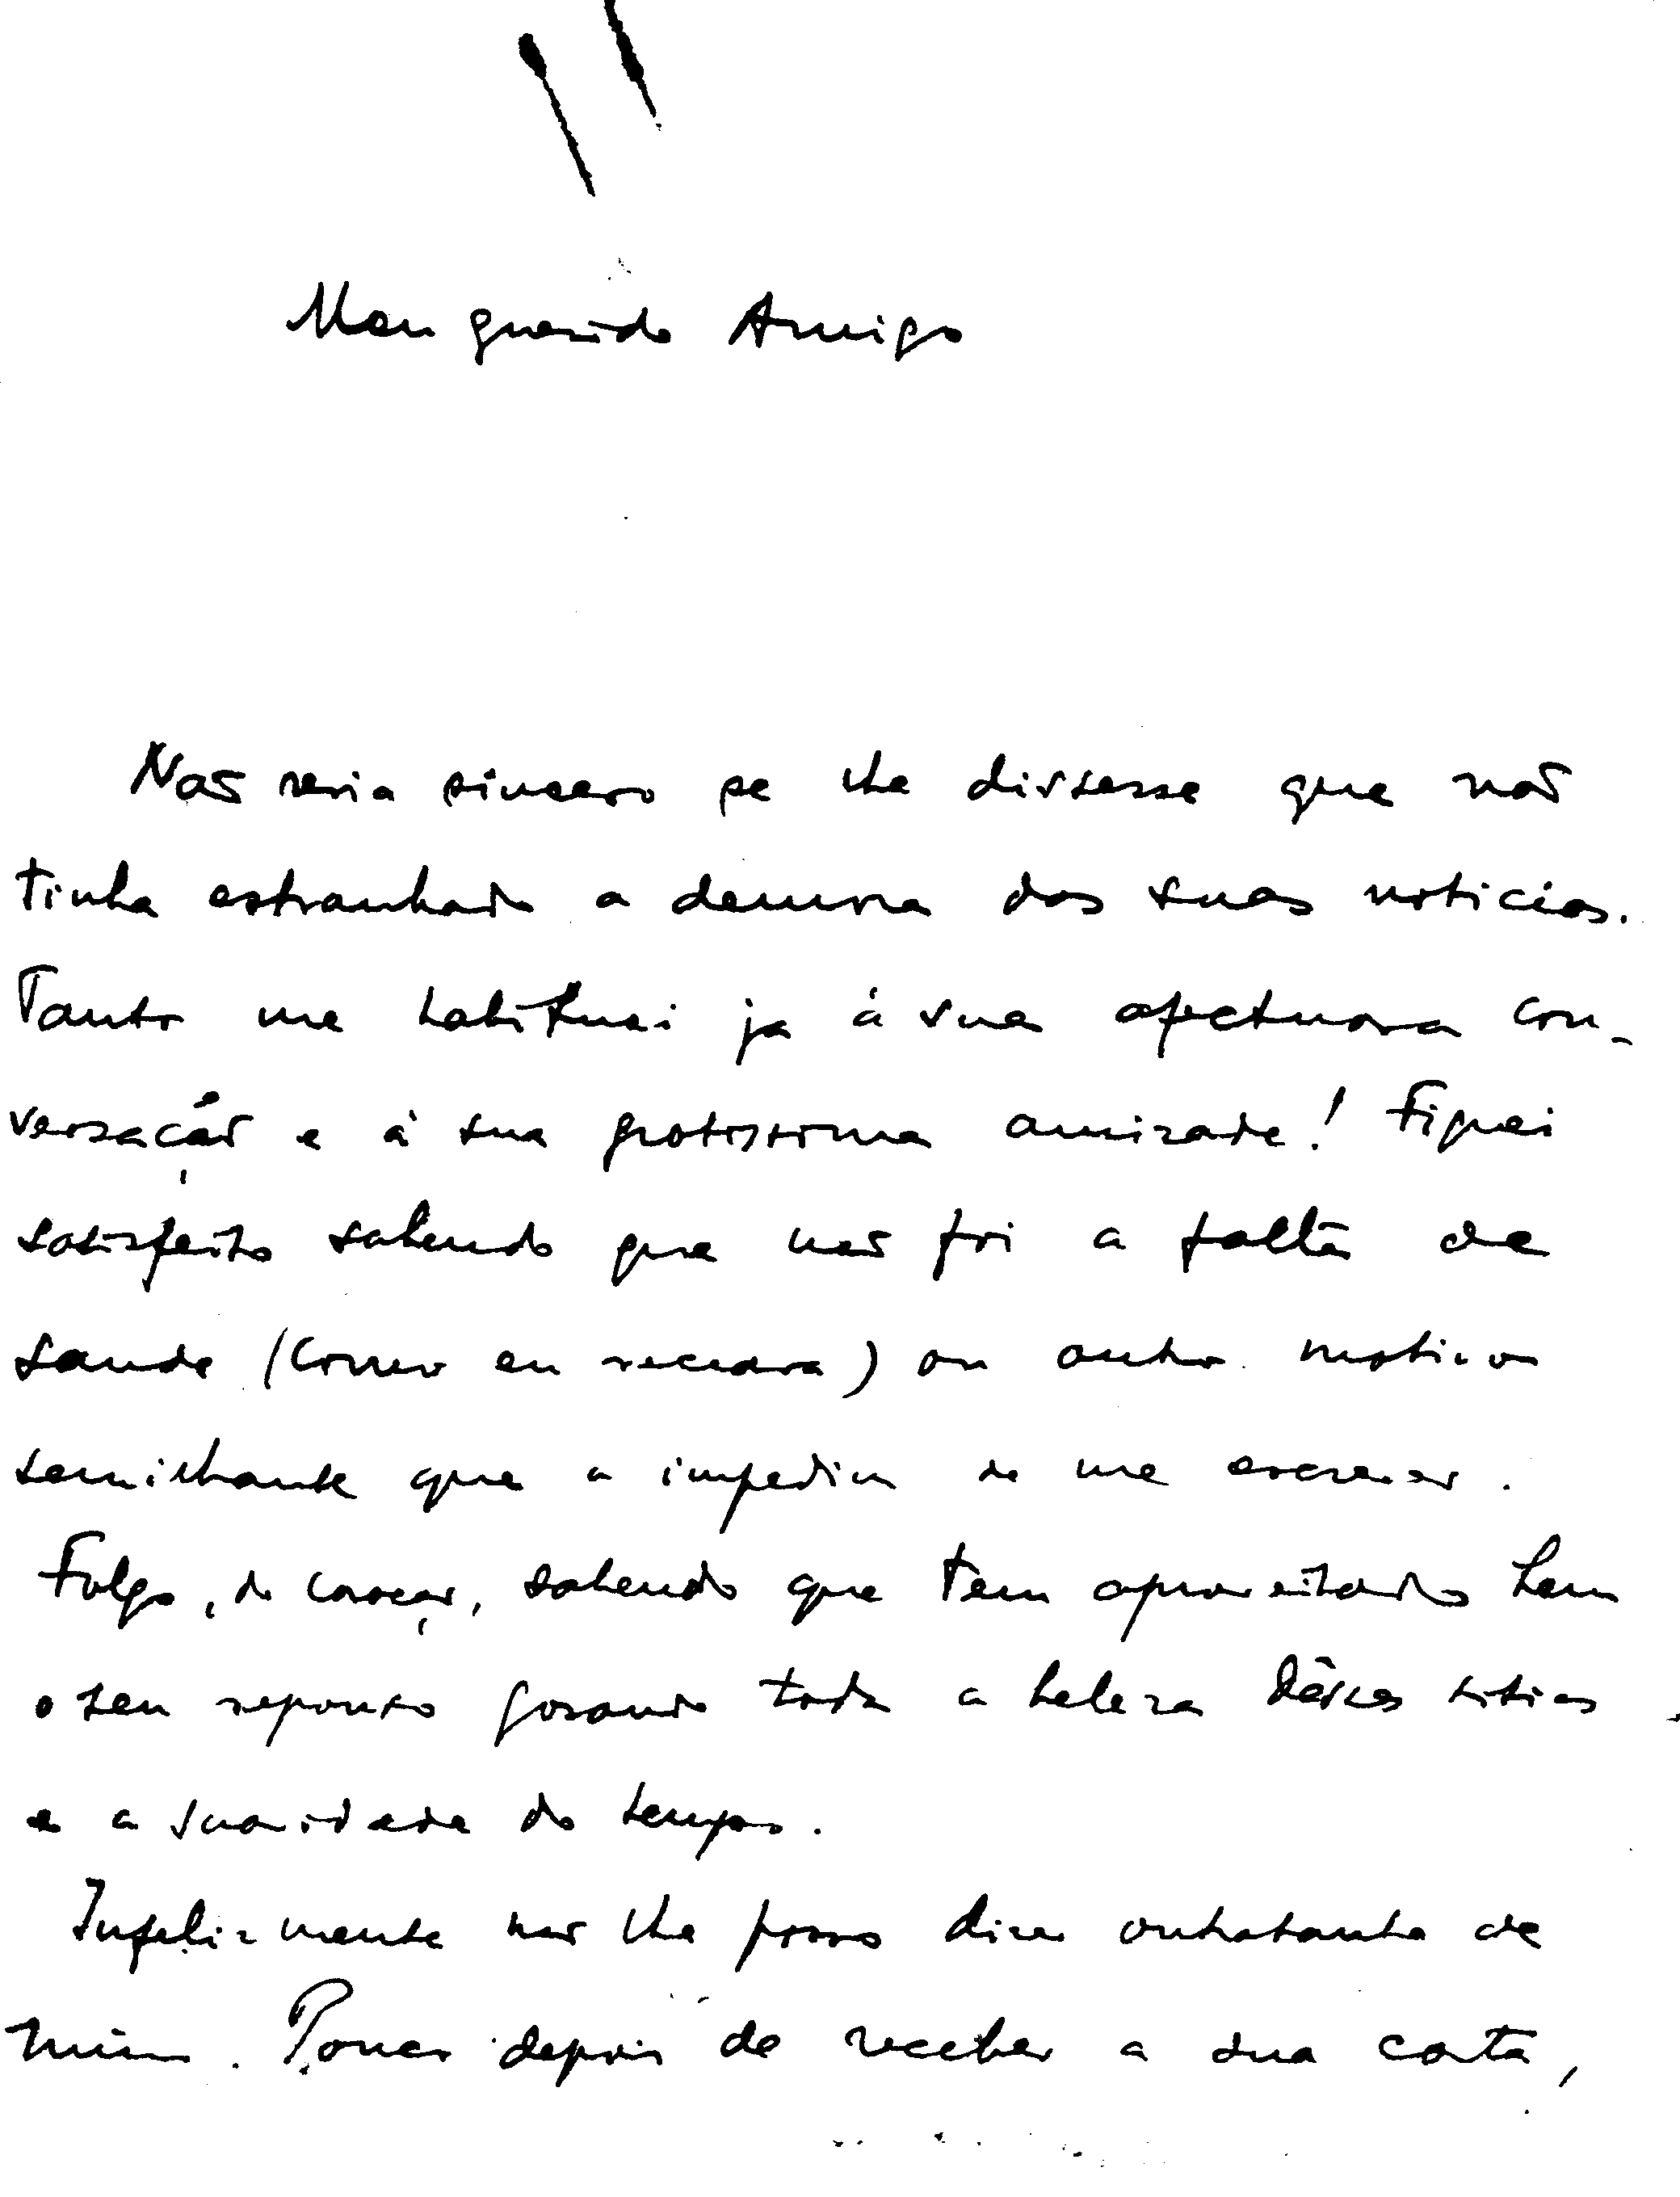 Meu querido Amigo
Não seria sincero se lhe dissesse que não
tinha estranhado a demora das suas noticias.
Tanto me habituei ja á sua afectuosa con-
versação e á sua gratissima amizade! Fiquei
satisfeito sabendo que não foi a falta de
saude (como eu receava) ou outro motivo
semilhante que a impediu de me escrever.
Folgo, do coração, sabendo que tem aproveitado bem
o seu repouso gosando toda a beleza dêsses sitios
e a suavidade do tempo.
Infelizmente não lhe posso dizer outrotanto de
mim. Pouco depois de receber a sua carta,